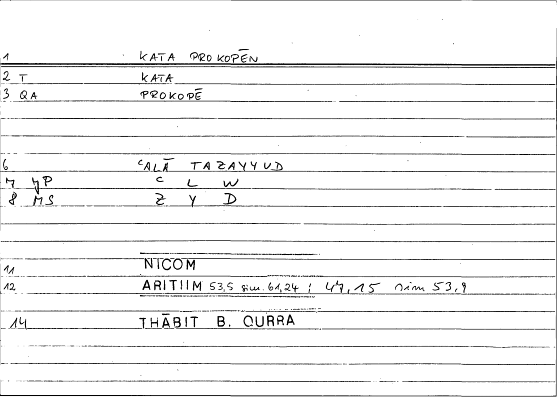 1 KATA PROKOPĒN
2 T KATA
3 QA PROKOPĒ
6 ʿALĀ TAZAYYUD
7 yP ʿ L W
8 MS Z Y D
11 NICOM
12 ARITIIM 53,5 sim. 61,24 ; 47,15 sim 53,9
14 THĀBIT B. QURRA